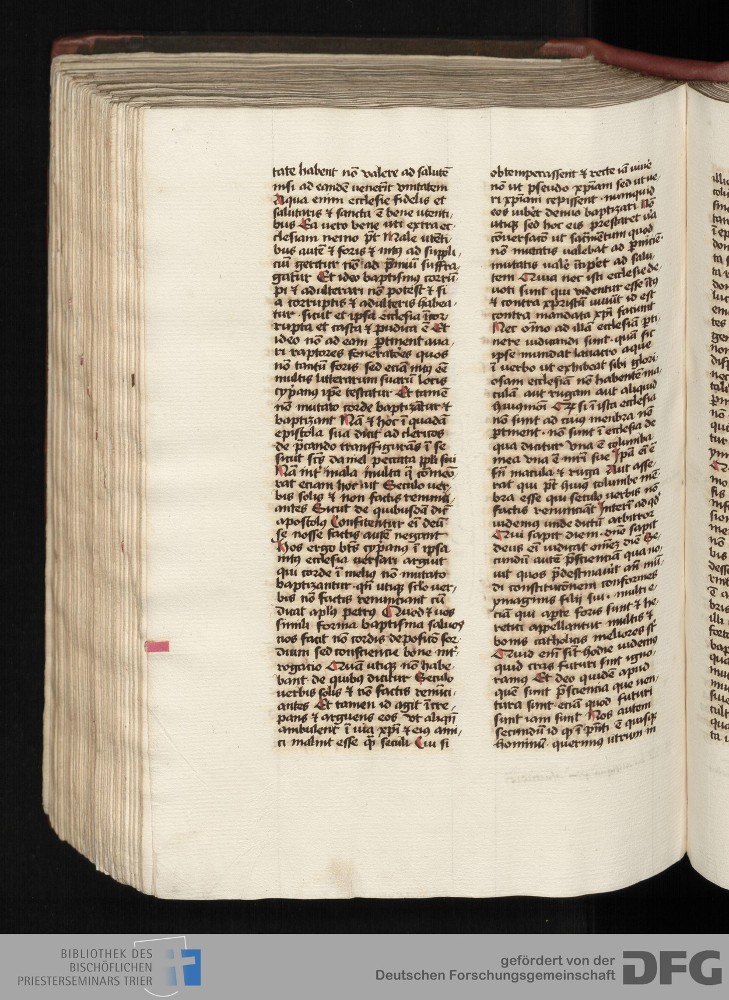 tate habent nō valere ad salutē
nisi ad eandē venerīt vnitatem
Aqua enim ecclesie fidelis et
salutaris & sancta ē bene utenti
bus Ea vero bene uti extra ec
clesiam nemo pt̄ Male utēti
bus autē & foris & intꝯ ad suppli
ciū geritur nō ad p̄miū suffra
gatur Et ideo baptismꝯ corrū
pi & adulterari nō potest & si
a corruptis & adulteris habea
tur sicut et ipsa ecclesia īcor
rupta et casta & pudica ē Et
ideo nō ad eam ptinent aua
ri raptores feneratores quos
nō tantū foris sed etiā intꝯ eē
multis litterarum suarū locis
cyp̄anꝯ ip̄e testatur Et tamē
nō mutato corde baptizātur &
baptizant Nā & hoc ī quadā
epistola sua dicit ad clericos
de p̄cando transfiguratꝯ ī se
sicut scs̄ daniel peccata ppli sui
Nā int̄ mala multa q̄ cōmeō
rat etiam hoc ait Seculo ver
bis solis & non factis renunci
antes Sicut de quibusdā dic̄
apostolꝯ Confitentur ei deū
se nosse factis autē negant
Hos ergo bt̄s cyp̄anꝯ ī ipsa
intꝯ ecclesia versari arguit
qui corde ī melius nō mutato
baptizantur qn̄ utiqꝫ sclo ver
bis nō factis renunciant cū
dicat aplꝯ petrꝯ Quod & vos
simili forma baptisma saluos
nos facit nō cordis depositō sor
dium sed conscientie bone int̄
rogatio Quā utiqꝫ nō habe
bant de quibꝯ dicitur Seculo
verbis solis & nō factis renūci
antes Et tamen id agit īcre
pans & arguens eos vt aliqn̄
ambulent ī uia xp̄i & eiꝯ ami
ci malint esse qm̄ seculi Cui si
obtemperassent & recte iā viuē
nō ut pseudo xp̄iam sed ut ve
ri xp̄iam cepissent nunquid
eos iubēt denuo baptizari Nō
utiqꝫ sed hoc eis prestaret vā
cōuersatō ut sacm̄entum quod
nō mutatis valebat ad p̄nicie
mutatis vale īciꝑet ad salu
tem Quia nec isti ecclesie de
uoti sunt qui videntur esse ītꝯ
& contra xp̄istū uiuūt id est
contra mandata xp̄i faciunt
Nec oīno ad illā ecclesiā pti
nere iudicandi sunt quā sic
ipse mundat lauacro aque
ī verbo ut exhibeat sibi glori
osam ecclesiā nō habentē ma
culā aut rugam aut aliquid
huiꝯmōi Qꝫ si ī ista ecclesia
nō sunt ad cuiꝯ menbra nō
ptinent nō sunt ī ecclesia de
qua dicitur vna ē columba
mea vna ē mr̄i sue Ip̄a ei ē
sn̄ macula & ruga Aut asse
rat qui pt̄ huiꝯ columbe mē
bra esse qui seculo verbis nō
factis renunciāt Interī ad qd̄
videmꝯ unde dictū arbitror
Qui sapit diem dn̄o sapit
deus ei iudicat omnē diē Se
cundū autē p̄scientiā qua no
uit quos p̄destinauit an̄ mū
di constitucōnem conformes
ymaginis filij sui multi e
ciā qui apte foris sunt & he
retici appellantur multis &
bonis catholicis meliores st̄
Quid em̄ sīt hodie videmꝯ
quid cras futuri sint igno
ramꝯ Et deo quidē apud
quē sunt p̄scientia que ven
tura sunt eciā quod futuri
sunt iam sunt Nos autem
secundū id qd̄ ī p̄nti ē quisqꝫ
hominū querimꝯ utrum in
BIBLIOTHEK DES
BISCHÖFLICHEN
PRIESTERSEMINARS TRIER
gefördert von der
Deutschen Forschungsgemeinschaft
DFG